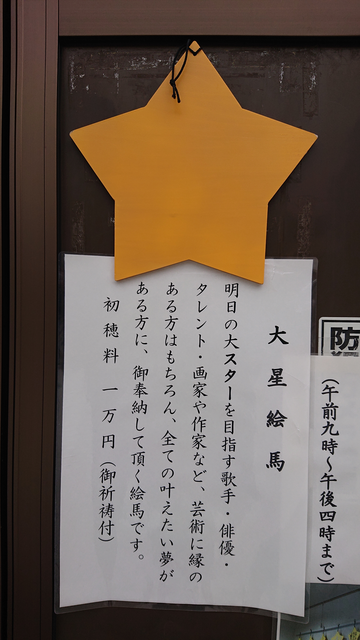 (午前九時～午後四時まで)
大星絵馬
明日の大スターを目指す歌手・俳優・
タレント・画家や作家など、芸術に縁の
ある方はもちろん、全ての叶えたい夢が
ある方に、御奉納して頂く絵馬です。
初穂料 一万円(御祈祷付)
防